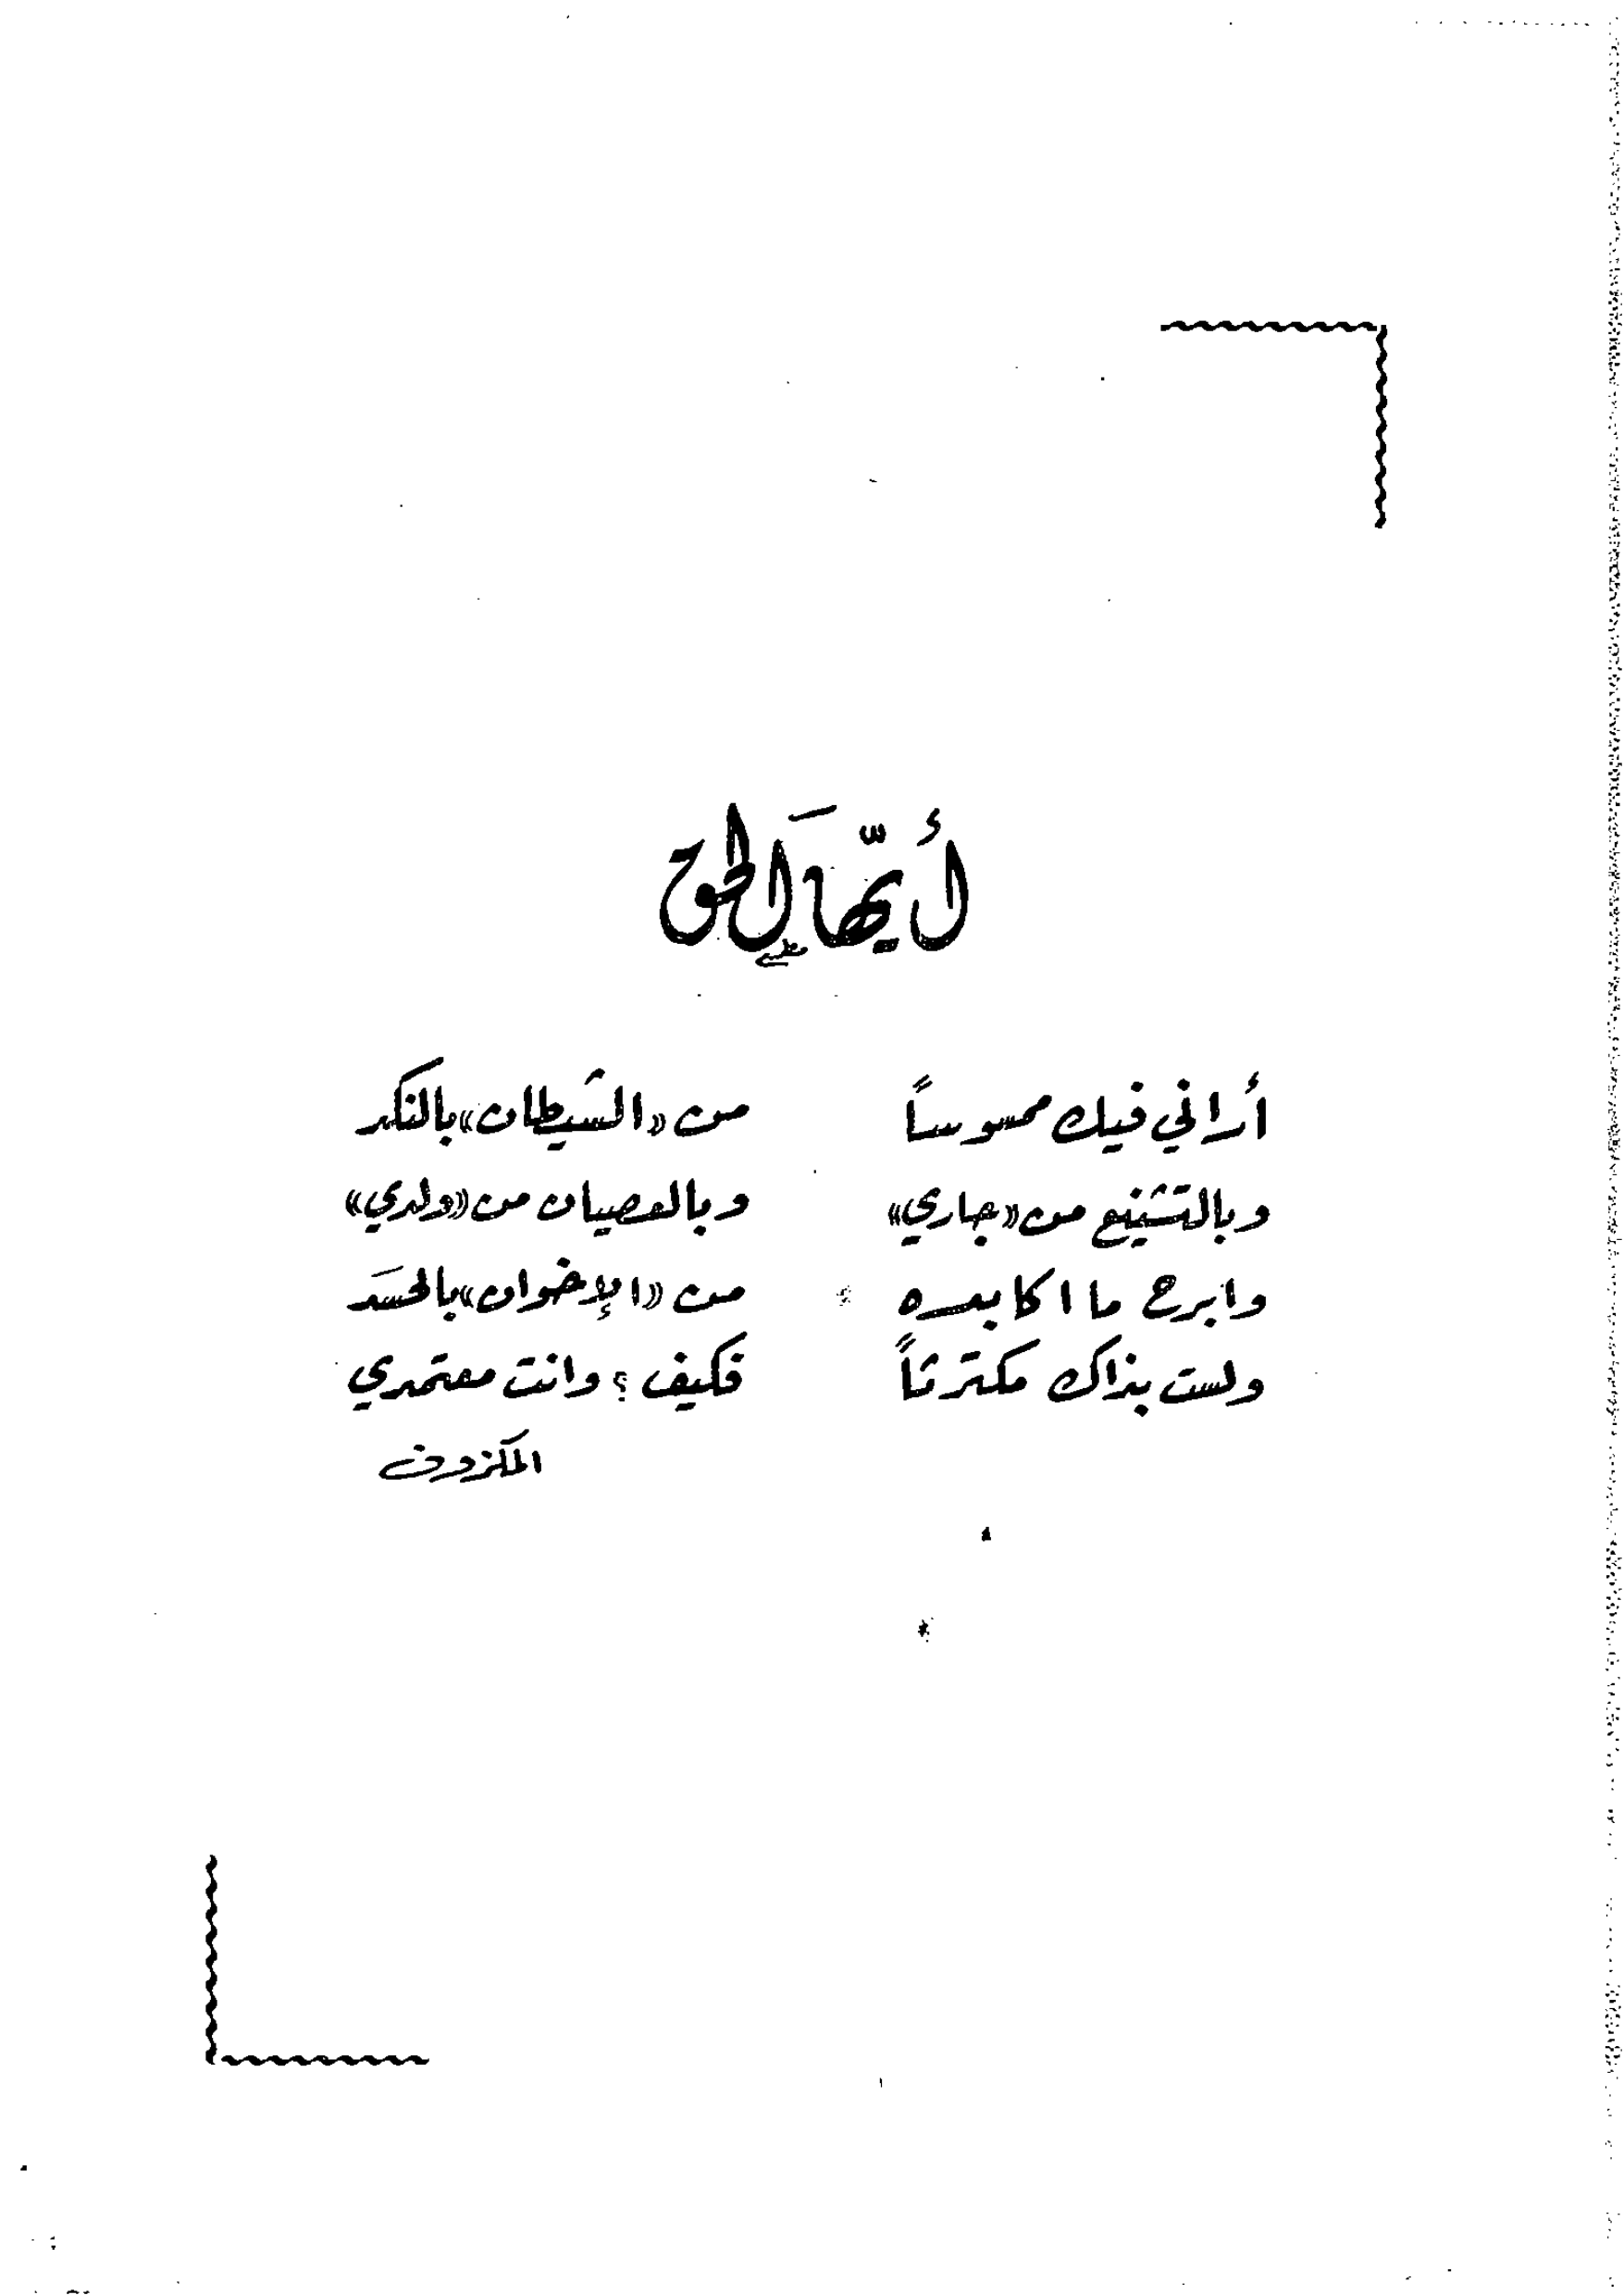 أيّهَا الحق
أراني فيك ممسوساً من «الشيطان» بالنكد
وبالتشنيع من «جاري» وبالعصيان من «ولدي»
وابرح ما اكابده من «الإخوان» بالحسَد
ولست بذاك مكترثاً فكيف؟ وانت معتمدي
المكزون